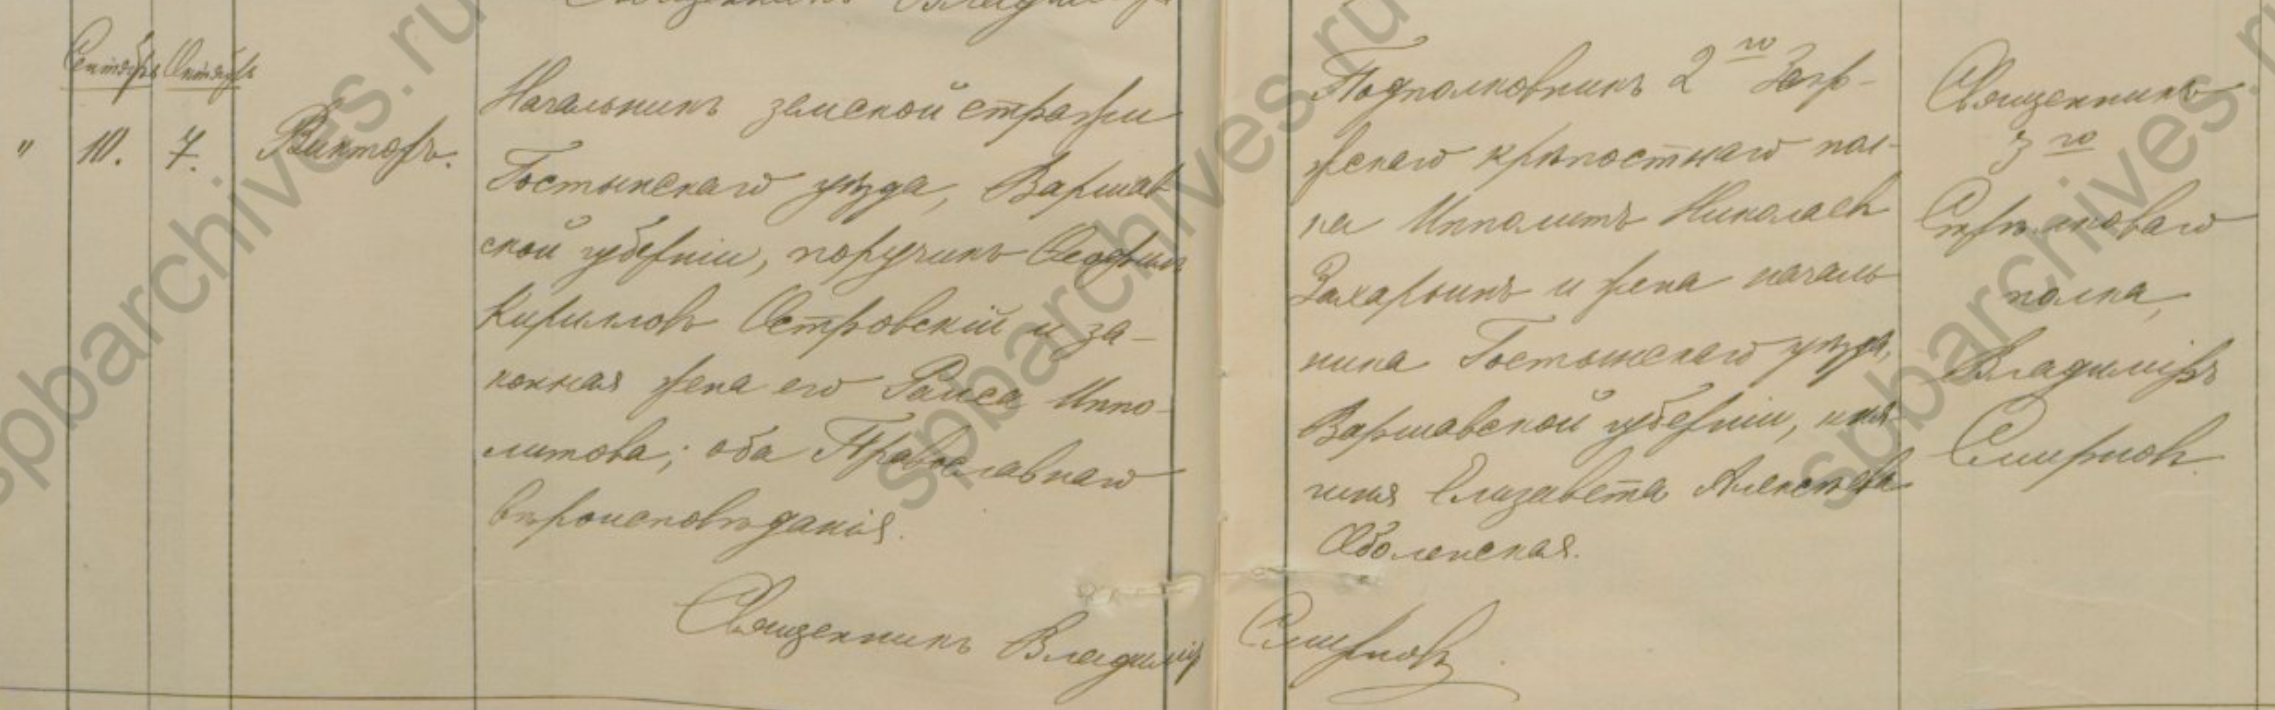 Сентябрь Октябрь
" 10. 7. Викторъ.
Начальникъ земской стражи
Гостынскаго уѣзда, Варшав
ской губерніи, поручикъ Теофилъ
Кирилловъ Островскій и за-
конная жена его Раиса Иппо-
литова; оба Православнаго
вѣроисповѣданія.
Подполковникъ 2го Зегр-
жскаго крѣпостнаго пол-
ка Ипполитъ Николаевъ
Захарьинъ и жена началь
ника Гостынскаго уѣзда,
Варшавской губерніи, кня
гиня Елизавета Алексѣева
Оболенская.
Священникъ
3го
Стрѣлковаго
полка,
Владиміръ
Смирновъ.
Священникъ Владиміръ Смирновъ
spbarchives.ru
spbarchives.ru
spbarchives.ru